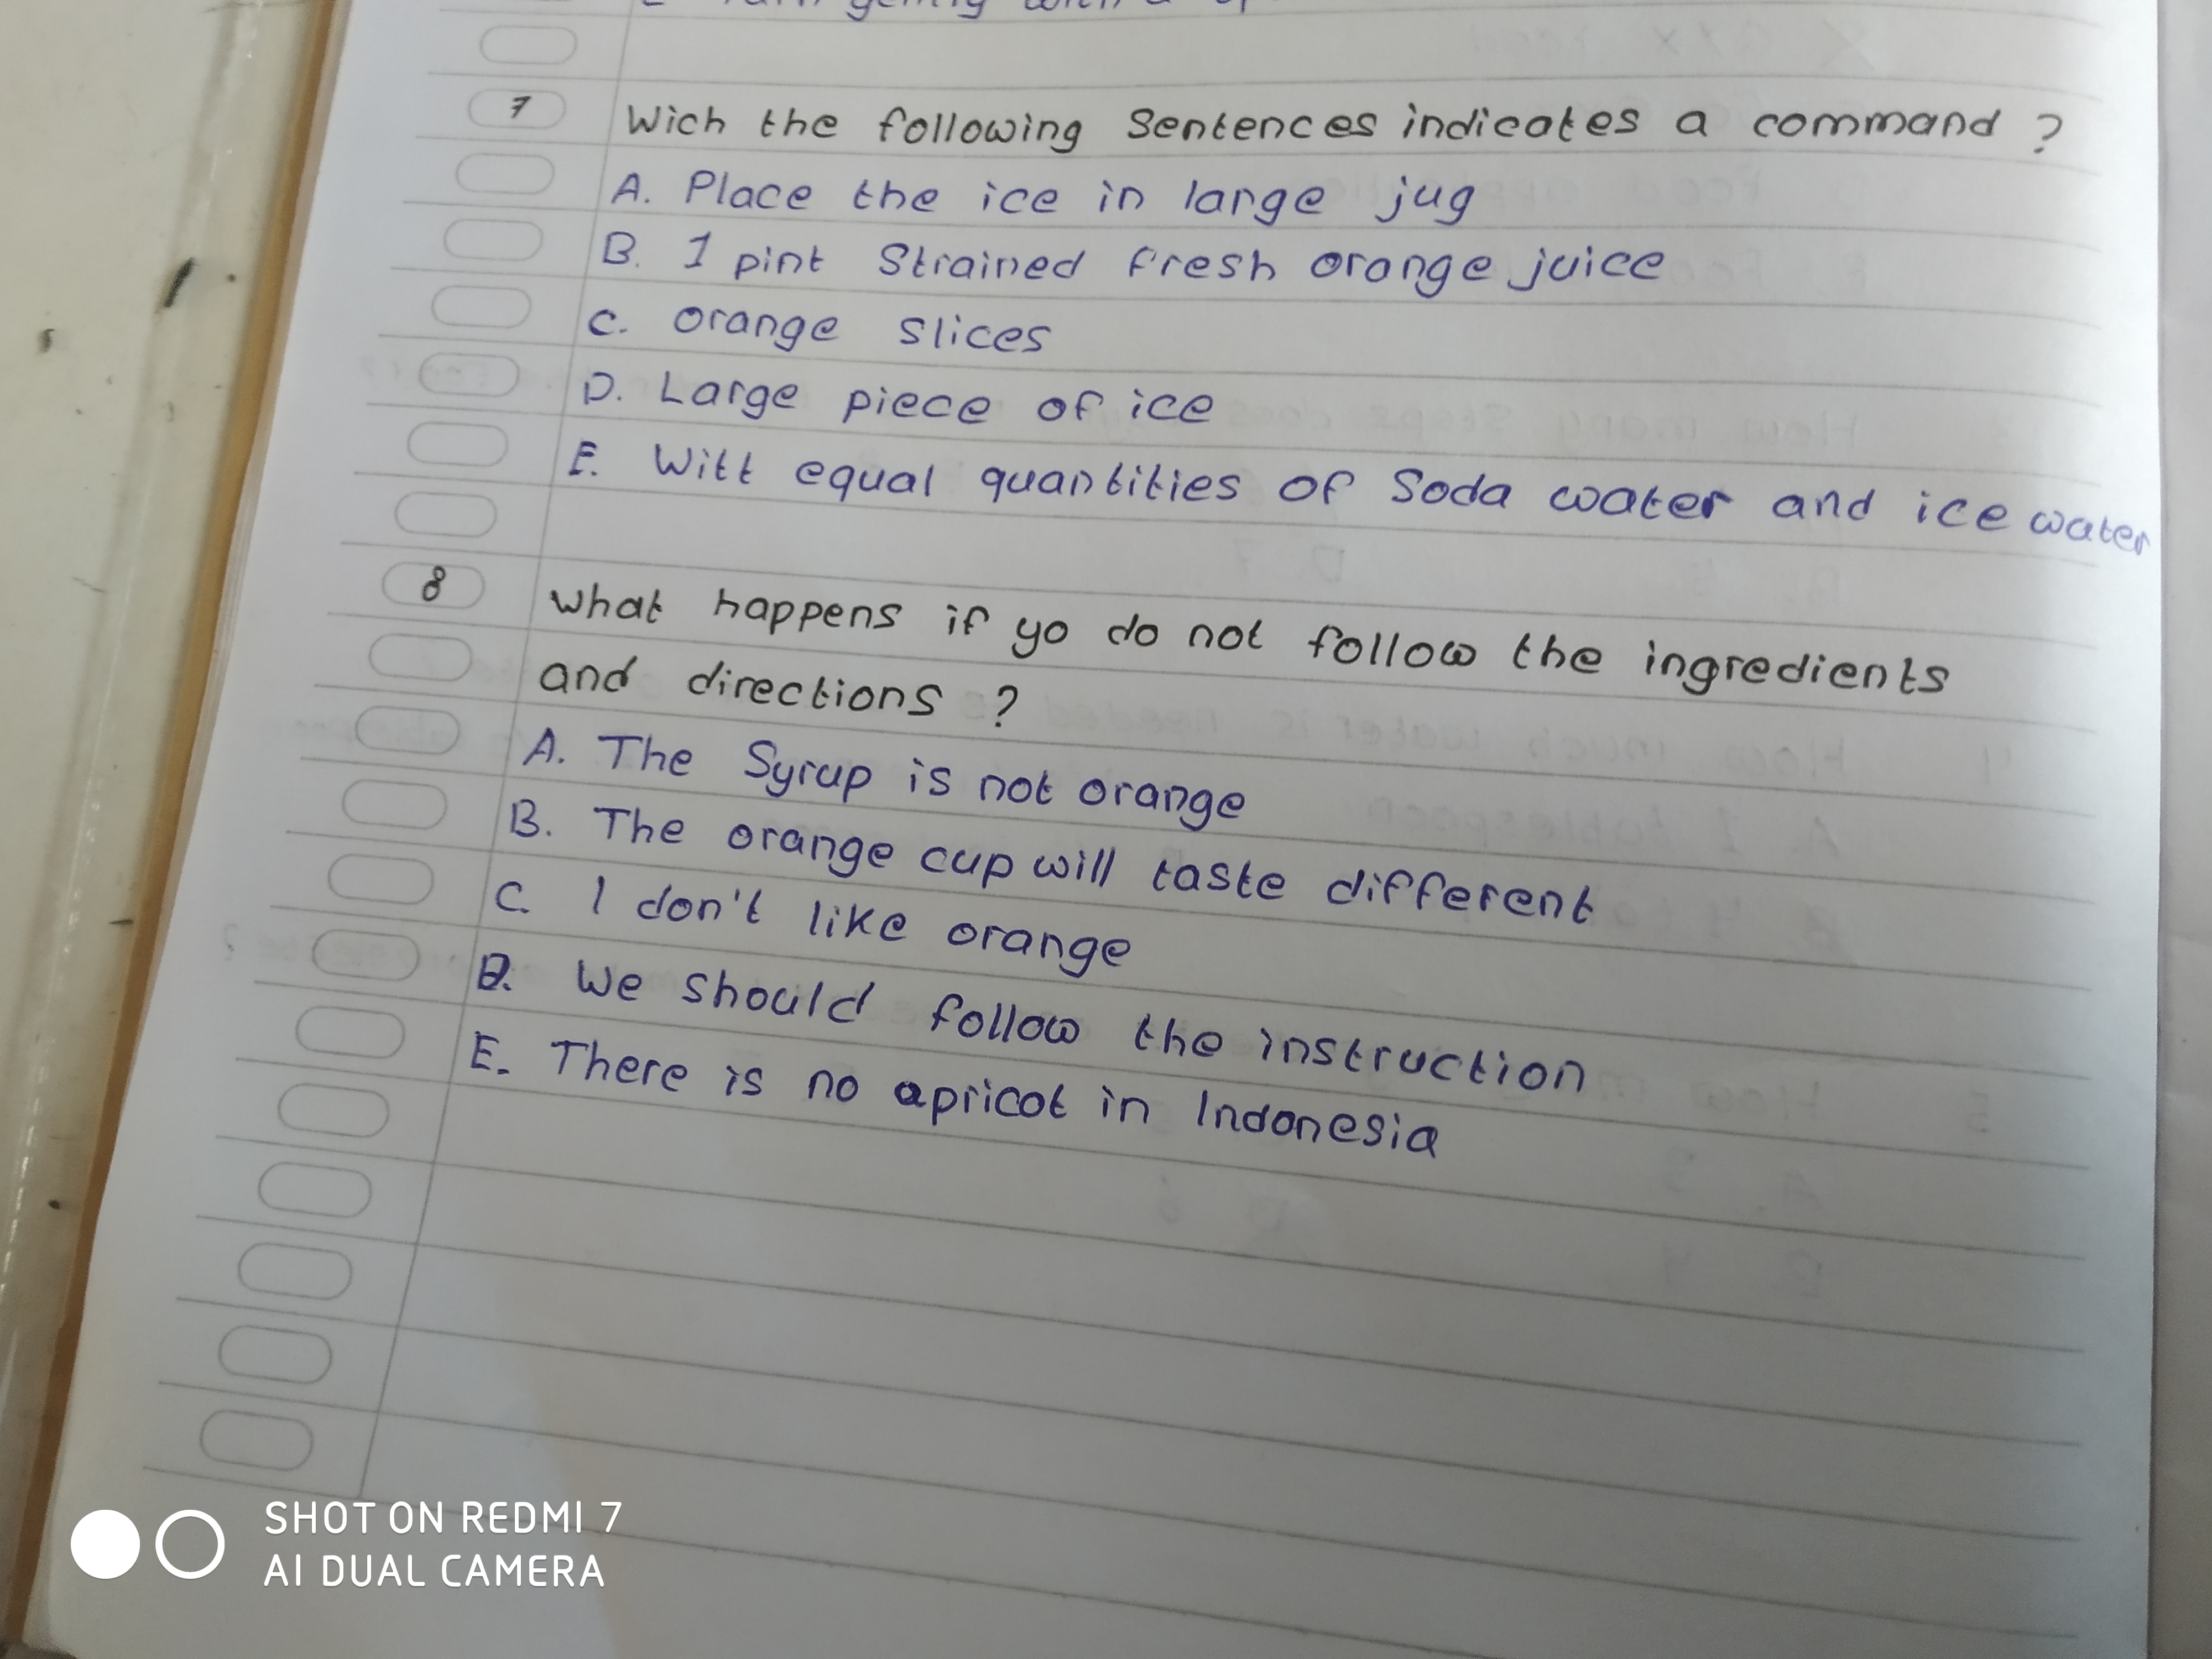 7 Wich the following Sentences indicates a command ?
A. Place the ice in large jug
B. 1 pint Strained fresh orange juice
C. orange slices
D. Large piece of ice
E. Witt equal quantities of Soda water and ice water
8 what happens if yo do not follow the ingredients
and directions ?
A. The Syrup is not orange
B. The orange cup will taste different
C. I don't like orange
D. We should follow the instruction
E. There is no apricot in Indonesia
SHOT ON REDMI 7
AI DUAL CAMERA